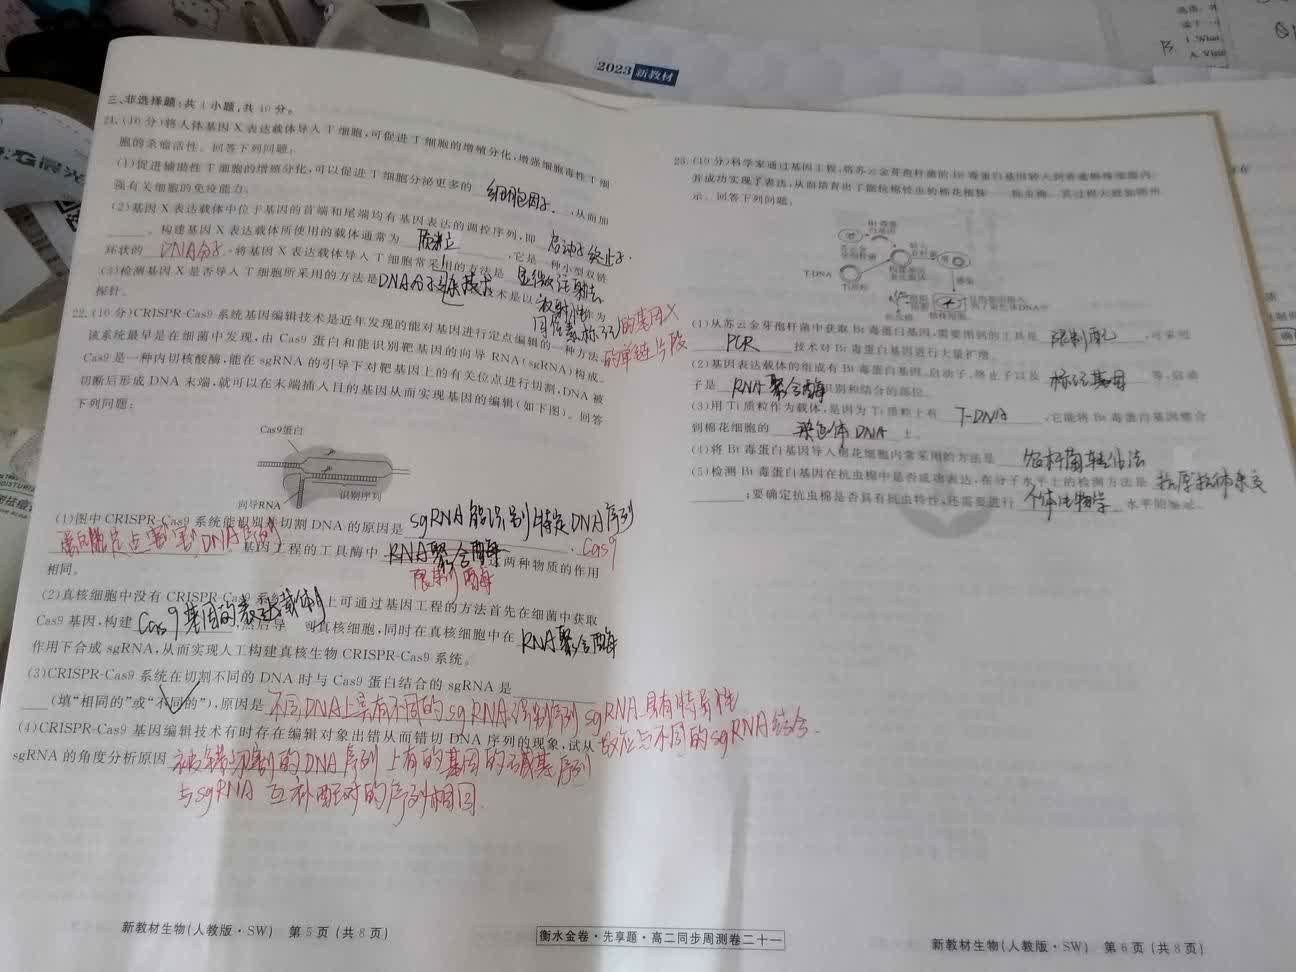 2023 新教材
三、非选择题:共4小题,共40分。
21.(10分)将人体基因X表达载体导入T细胞,可促进T细胞的增殖分化,增强细胞毒性T细
胞的杀瘤活性。回答下列问题:
(1)促进辅助性T细胞的增殖分化,可以促进T细胞分泌更多的 细胞因子 ,从而加
强有关细胞的免疫能力。
(2)基因X表达载体中位于基因的首端和尾端均有基因表达的调控序列,即 启动子 终止子
。构建基因X表达载体所使用的载体通常为 质粒 ,它是一种小型双链
环状的 DNA分子 。将基因X表达载体导入T细胞常采用的方法是 显微注射法
(3)检测基因X是否导入T细胞所采用的方法是 DNA分子杂交技术 术是以 放射性 为
同位素标记的基因X
的单链片段
探针。
22.(10分)CRISPR-Cas9系统基因编辑技术是近年发现的能对基因进行定点编辑的一种方法,
该系统最早是在细菌中发现,由Cas9蛋白和能识别靶基因的向导RNA(sgRNA)构成。
Cas9是一种内切核酸酶,能在sgRNA的引导下对靶基因上的有关位点进行切割,DNA被
切断后形成DNA末端,就可以在末端插入目的基因从而实现基因的编辑(如下图)。回答
下列问题:
Cas9蛋白
识别序列
向导RNA
(1)图中CRISPR-Cas9系统能识别并切割DNA的原因是 sgRNA能识别特定DNA序列
蛋白能定点切割DNA序列 。 Cas9
基因工程的工具酶中 RNA聚合酶 两种物质的作用
限制酶
相同。
(2)真核细胞中没有CRISPR-Cas9系统 上可通过基因工程的方法首先在细菌中获取
Cas9基因,构建 Cas9基因的表达载体 ,然后导 真核细胞,同时在真核细胞中在 RNA聚合酶
作用下合成sgRNA,从而实现人工构建真核生物CRISPR-Cas9系统。
(3)CRISPR-Cas9系统在切割不同的DNA时与Cas9蛋白结合的sgRNA是
(填“相同的”或“不同的”),原因是 不同DNA上具有不同的sgRNA识别序列 sgRNA具有特异性
故应与不同的sgRNA结合.
(4)CRISPR-Cas9基因编辑技术有时存在编辑对象出错从而错切DNA序列的现象,试从
sgRNA的角度分析原因 被错切割的DNA序列上有的基因的碱基序列
与sgRNA互补配对的序列相同.
新教材生物(人教版·SW) 第5页(共8页)
衡水金卷·先享题·高二同步周测卷二十一
23.(10分)科学家通过基因工程,将苏云金芽孢杆菌的Bt毒蛋白基因转入到普通棉株细胞内,
并成功实现了表达,从而培育出了能抗棉铃虫的棉花植株——抗虫棉。其过程大致如图所
示。回答下列问题:
T-DNA
Ti质粒
(1)从苏云金芽孢杆菌中获取Bt毒蛋白基因,需要用到的工具是 限制酶 ,可采用
PCR 技术对Bt毒蛋白基因进行大量扩增。
(2)基因表达载体的组成有Bt毒蛋白基因、启动子、终止子以及 标记基因 等,启动
子是 RNA聚合酶 识别和结合的部位。
(3)用Ti质粒作为载体,是因为Ti质粒上有 T-DNA ,它能将Bt毒蛋白基因整合
到棉花细胞的 染色体DNA 上。
(4)将Bt毒蛋白基因导入棉花细胞内常采用的方法是 农杆菌转化法
(5)检测Bt毒蛋白基因在抗虫棉中是否成功表达,在分子水平上的检测方法是 抗原抗体杂交
;要确定抗虫棉是否具有抗虫特性,还需要进行 个体生物学 水平的鉴定。
新教材生物(人教版·SW) 第6页(共8页)